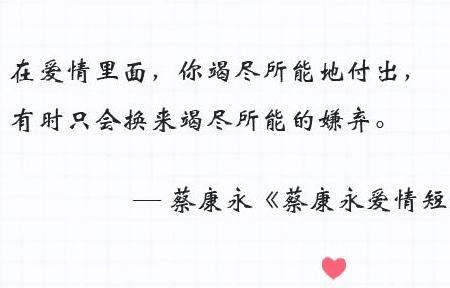 在爱情里面，你竭尽所能地付出，
有时只会换来竭尽所能的嫌弃。
— 蔡康永《蔡康永爱情短